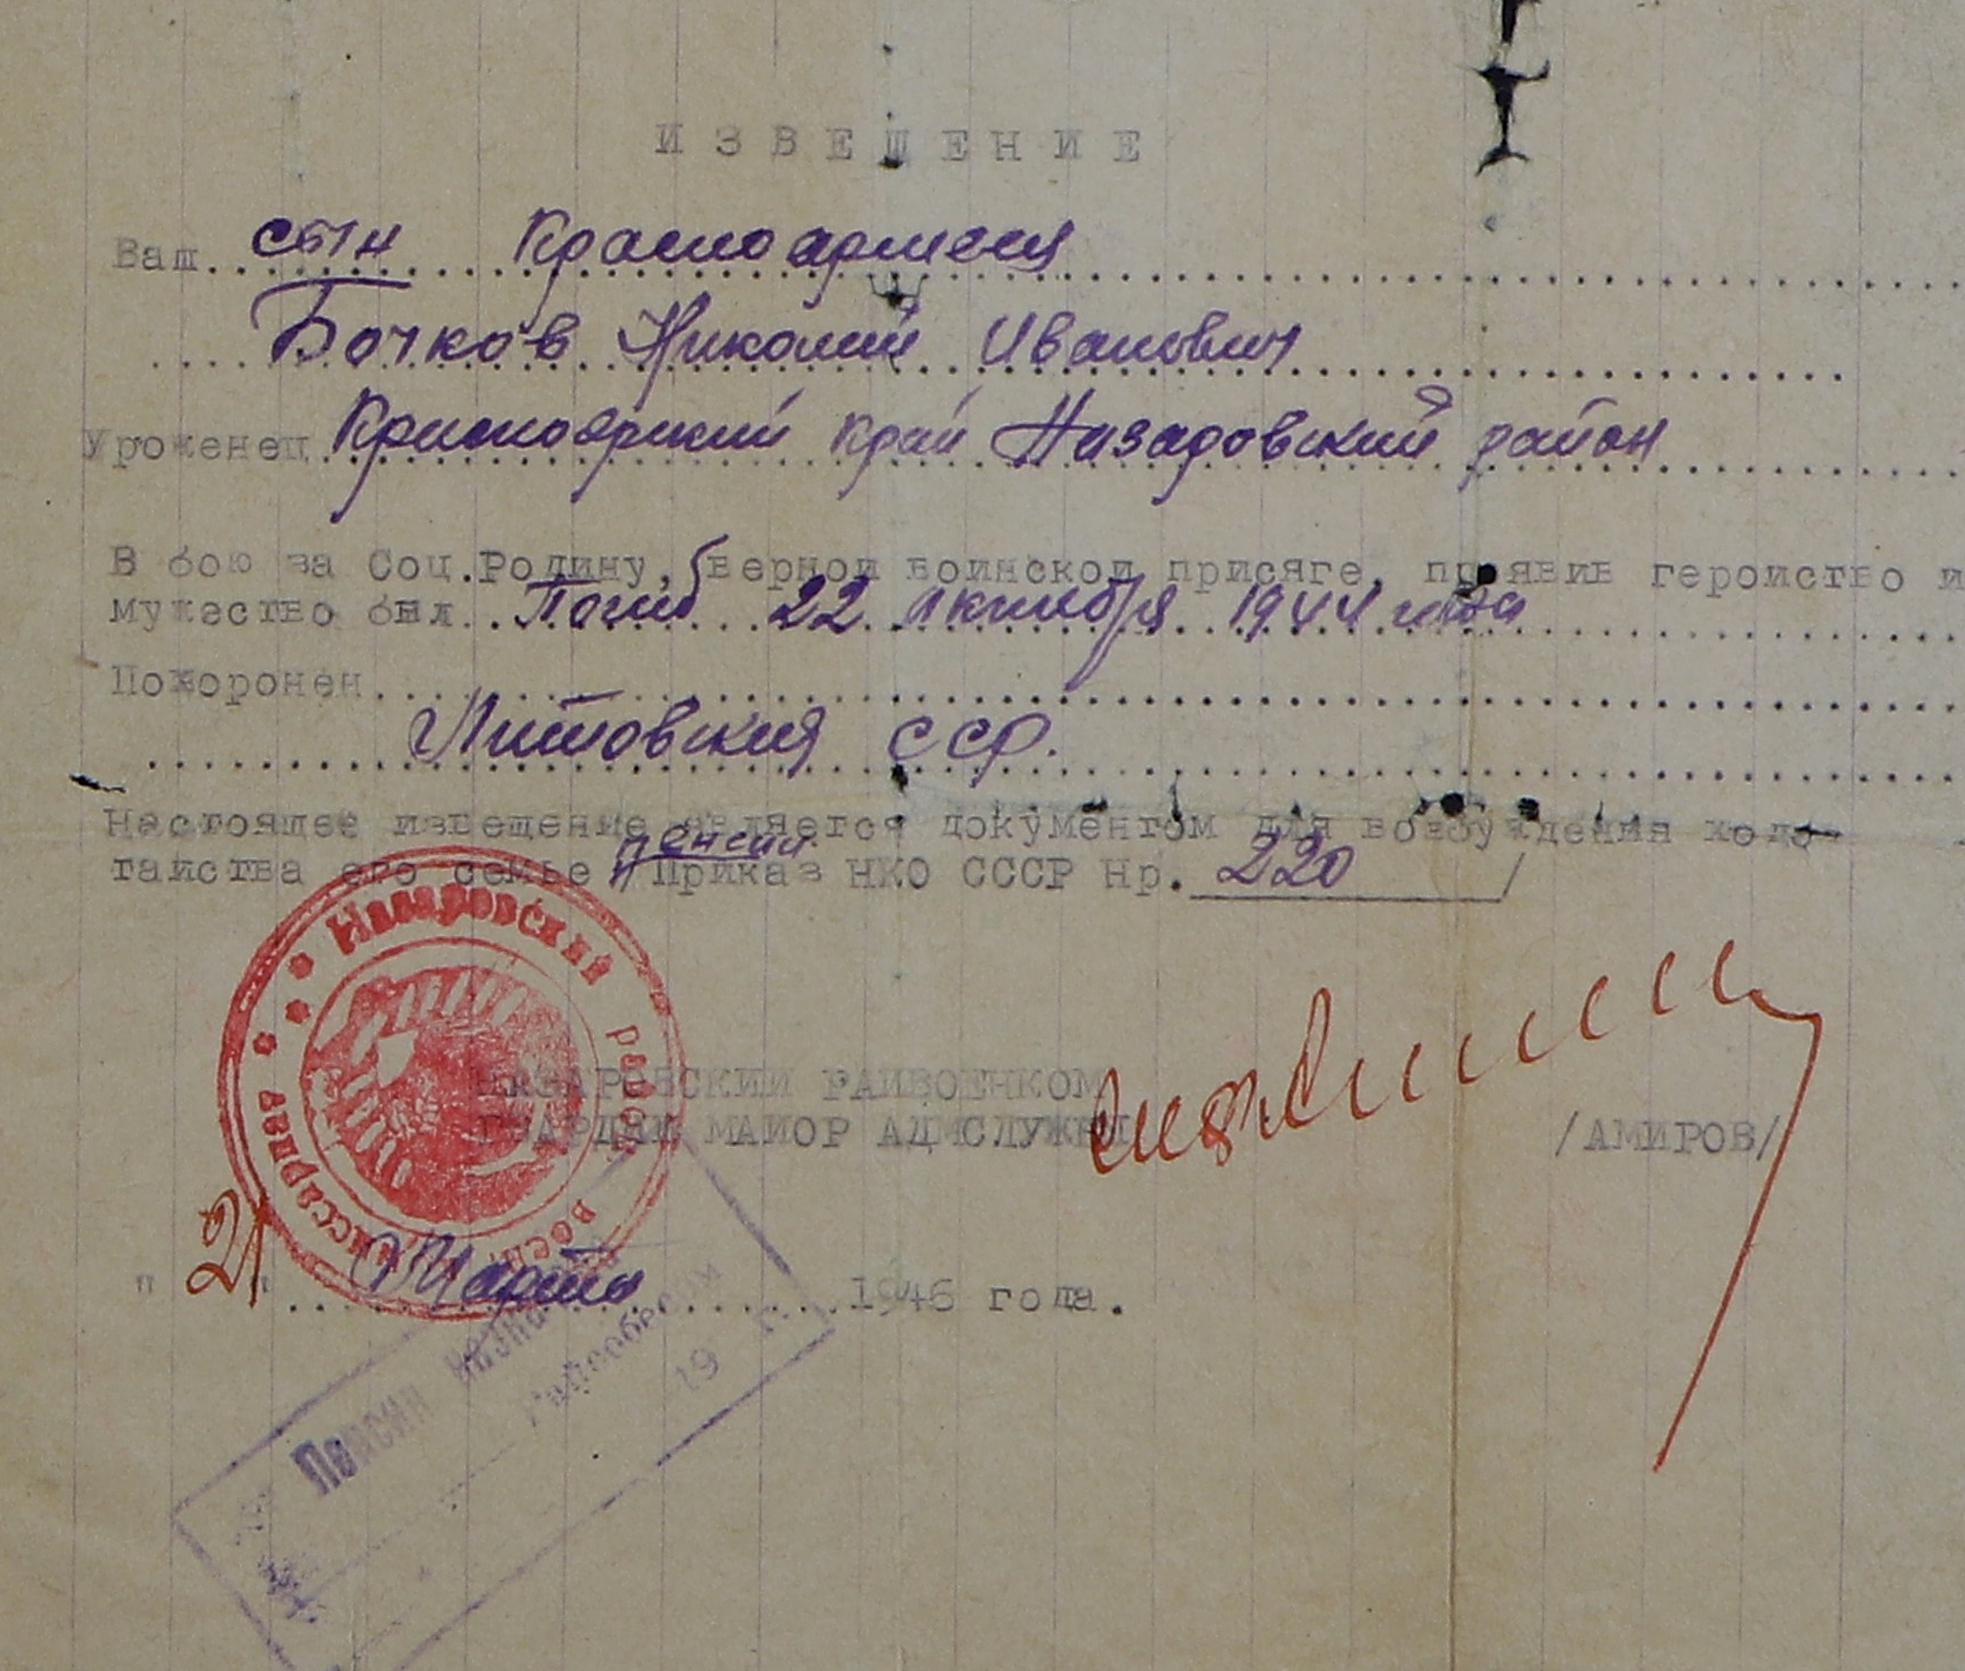 ИЗВЕЩЕНИЕ
Ваш сын Красноармеец
Бочков Николай Иванович
Уроженец Красноярский край Назаровский район
В бою за Соц.Родину, верной воинской присяге, проявив геройство и
мужество был Погиб 22 октября 1944 года
Похоронен
Литовская ССР.
Настоящее извещение является документом для возбуждения хода-
тайства его семье пенсии /Приказ НКО СССР Нр. 220 /
Назаровский район. воен. комиссариат
НАЗАРОВСКИЙ РАЙВОЕНКОМ
ГВАРДИИ МАЙОР АДМСЛУЖБЫ /АМИРОВ/
"21" Марта 1946 года.
Пенсия
Райсобесом
19 г.